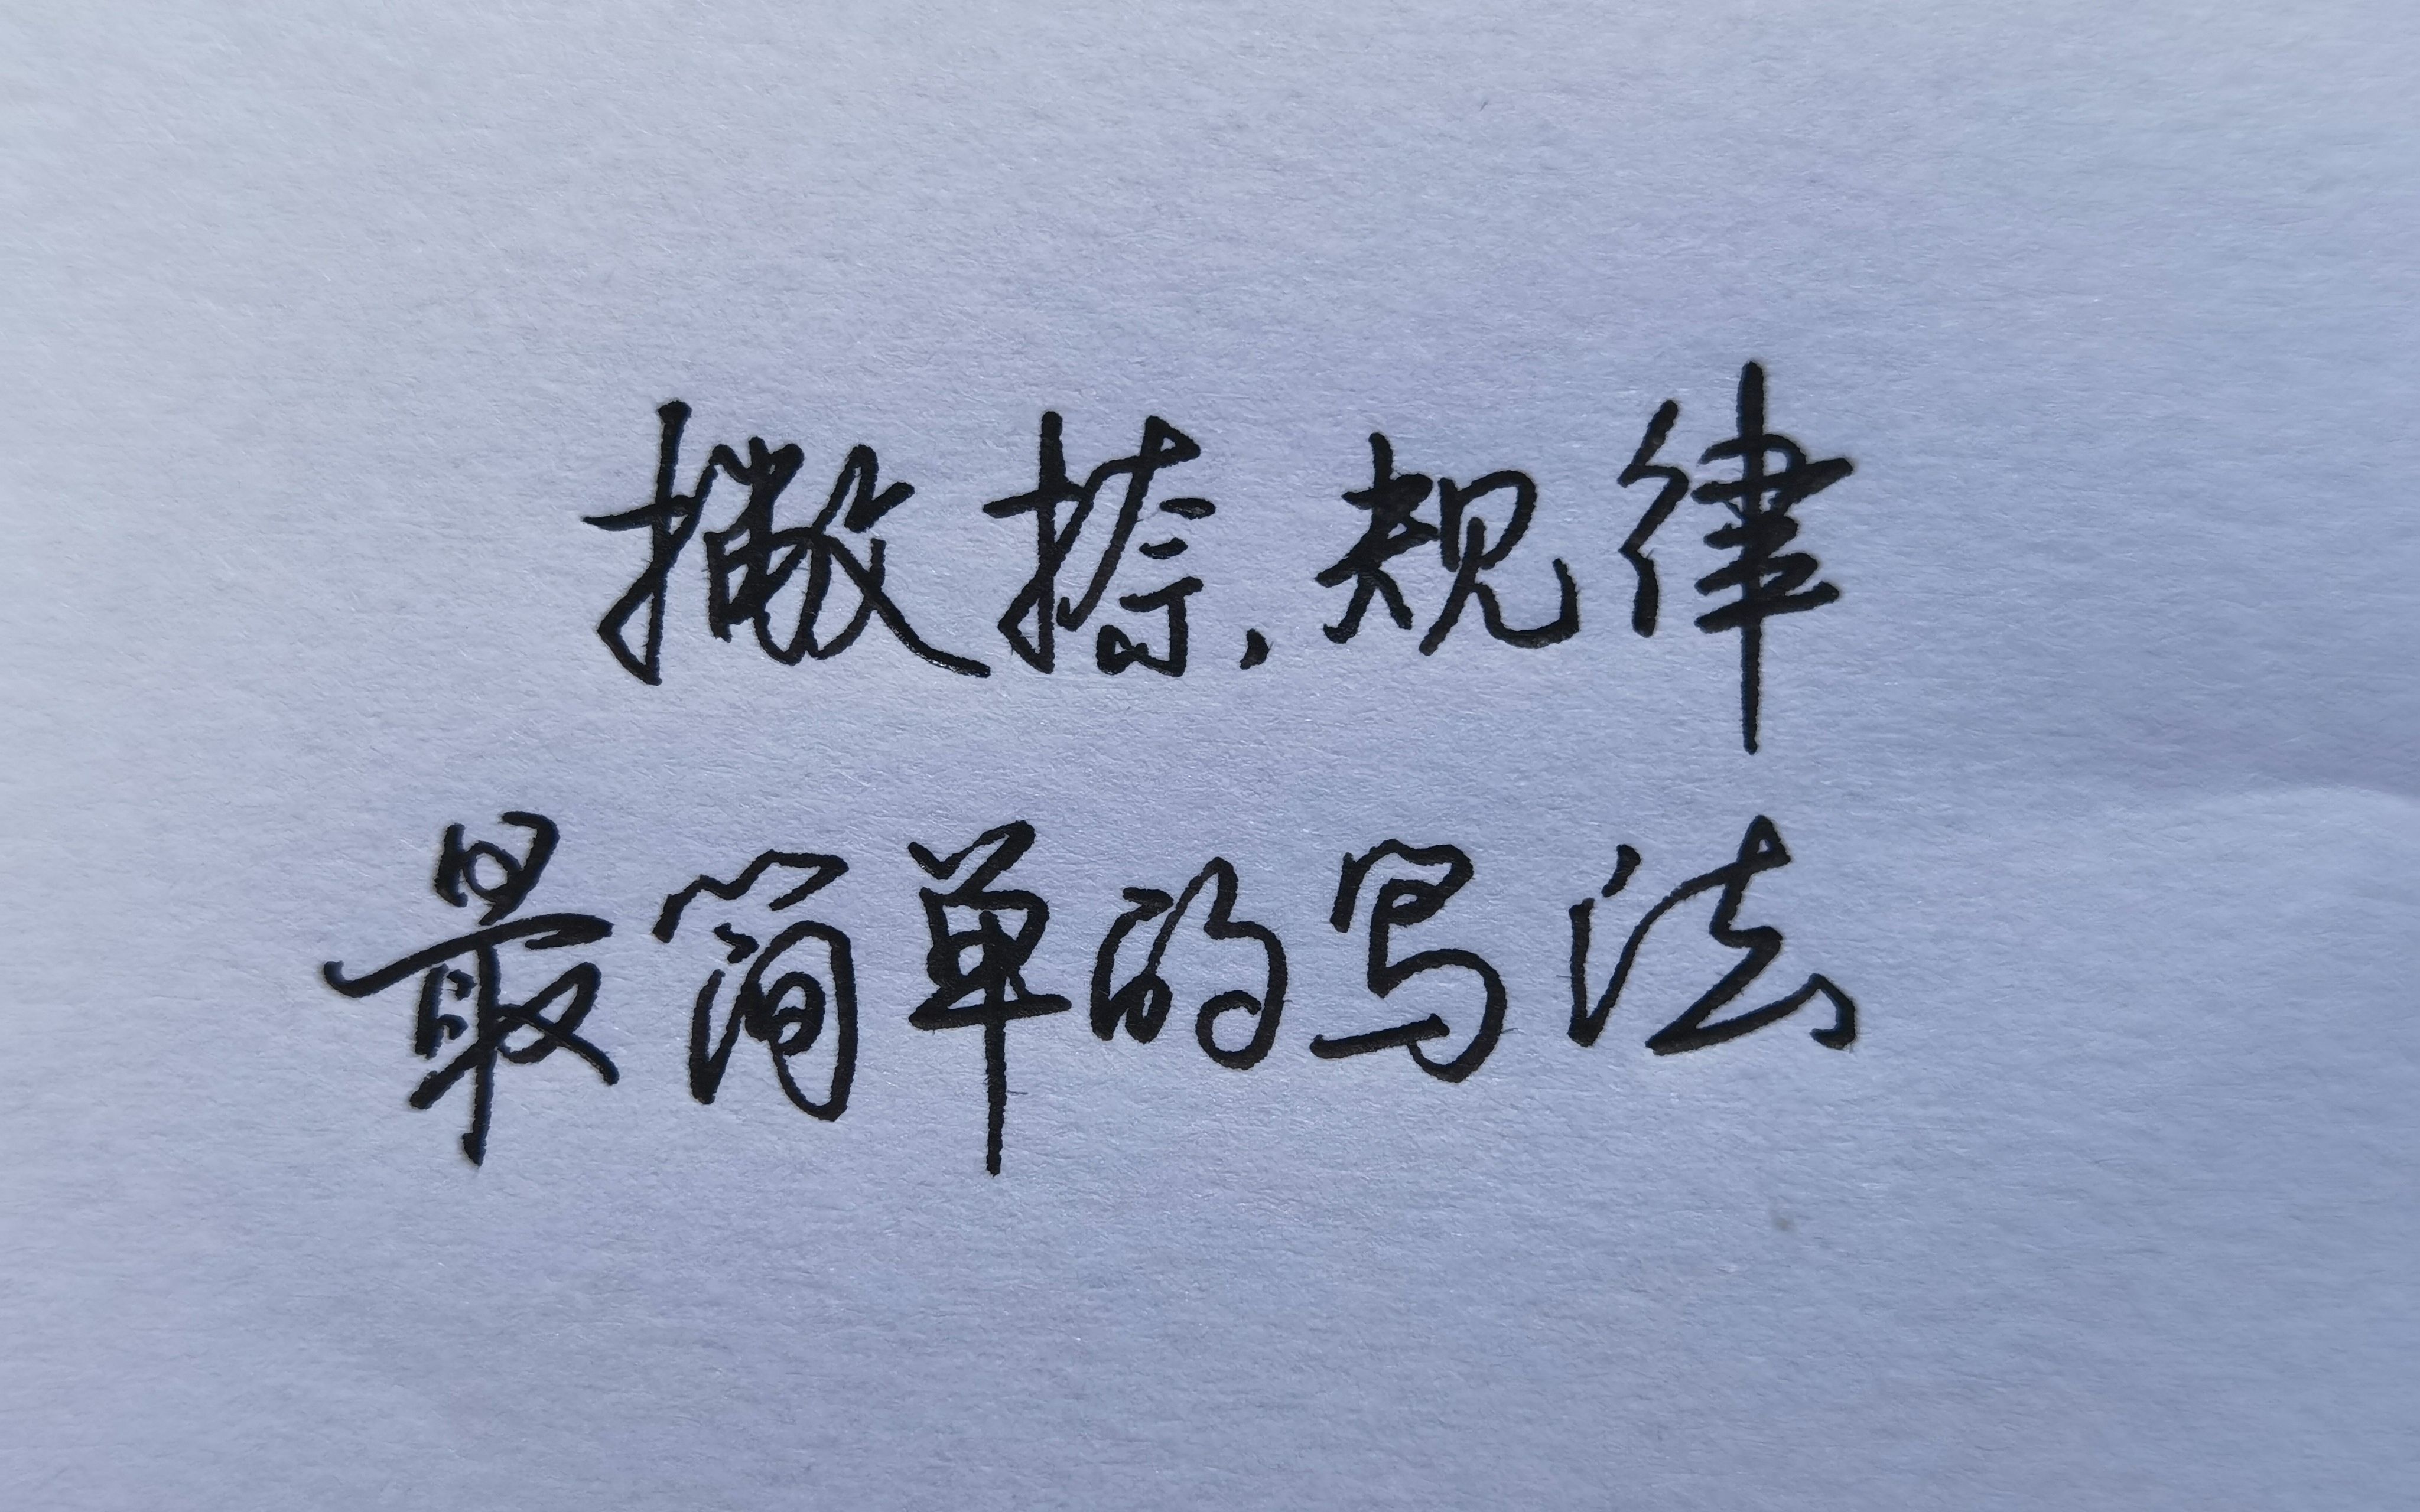 撇捺.规律
最简单的写法